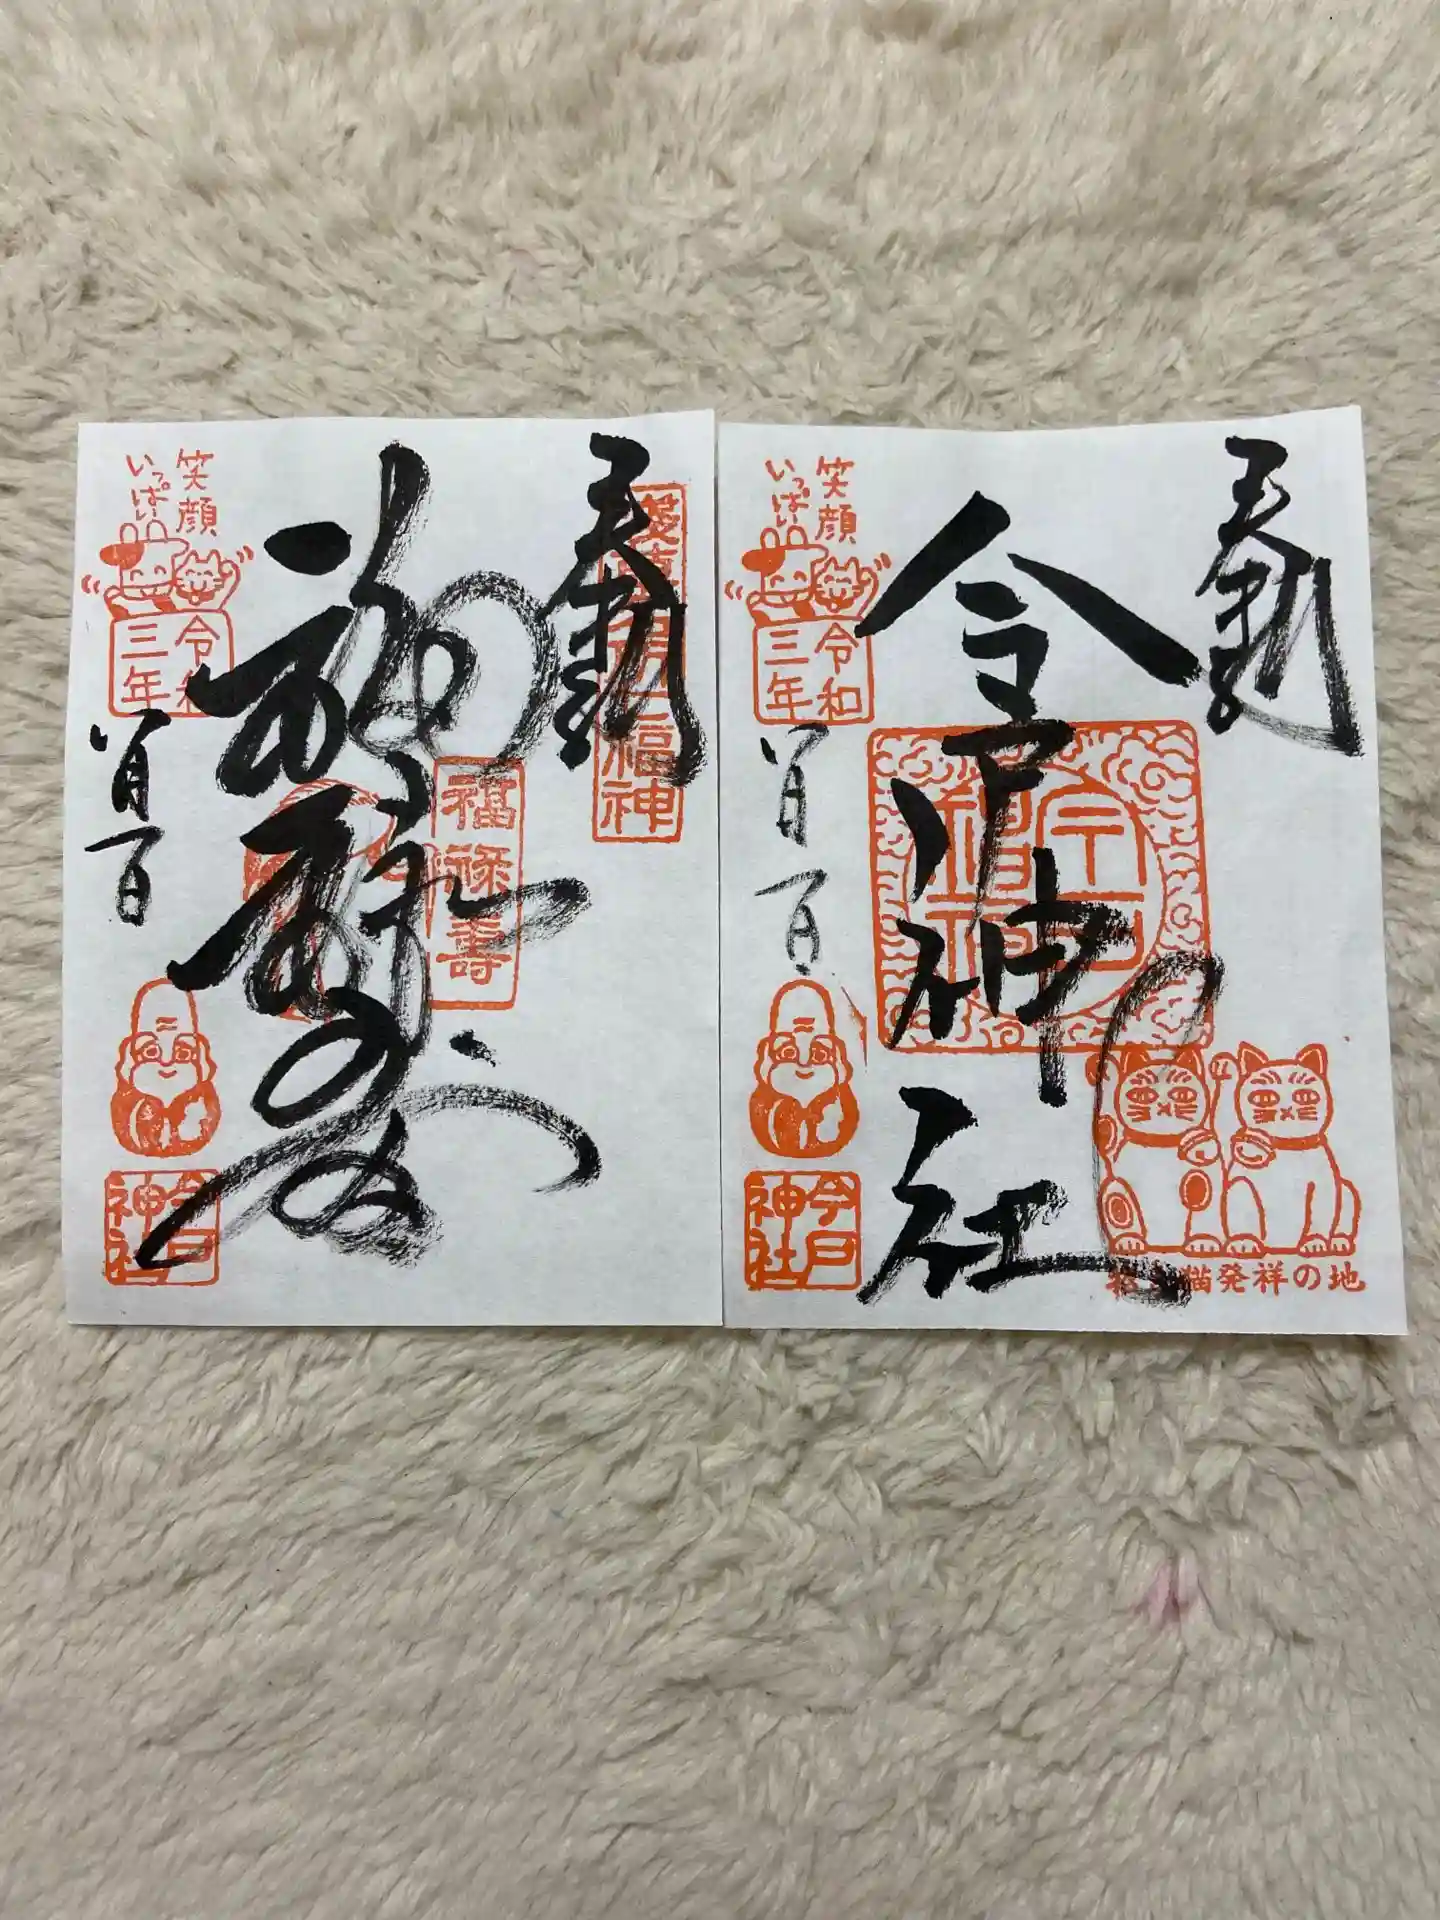 奉拝
浅草名所七福神
福禄寿
福禄寿
笑顔
いっぱい
令和
三年
今戸
神社
奉拝
今戸神社
今戸
神社
笑顔
いっぱい
令和
三年
今戸
神社
招き猫発祥の地